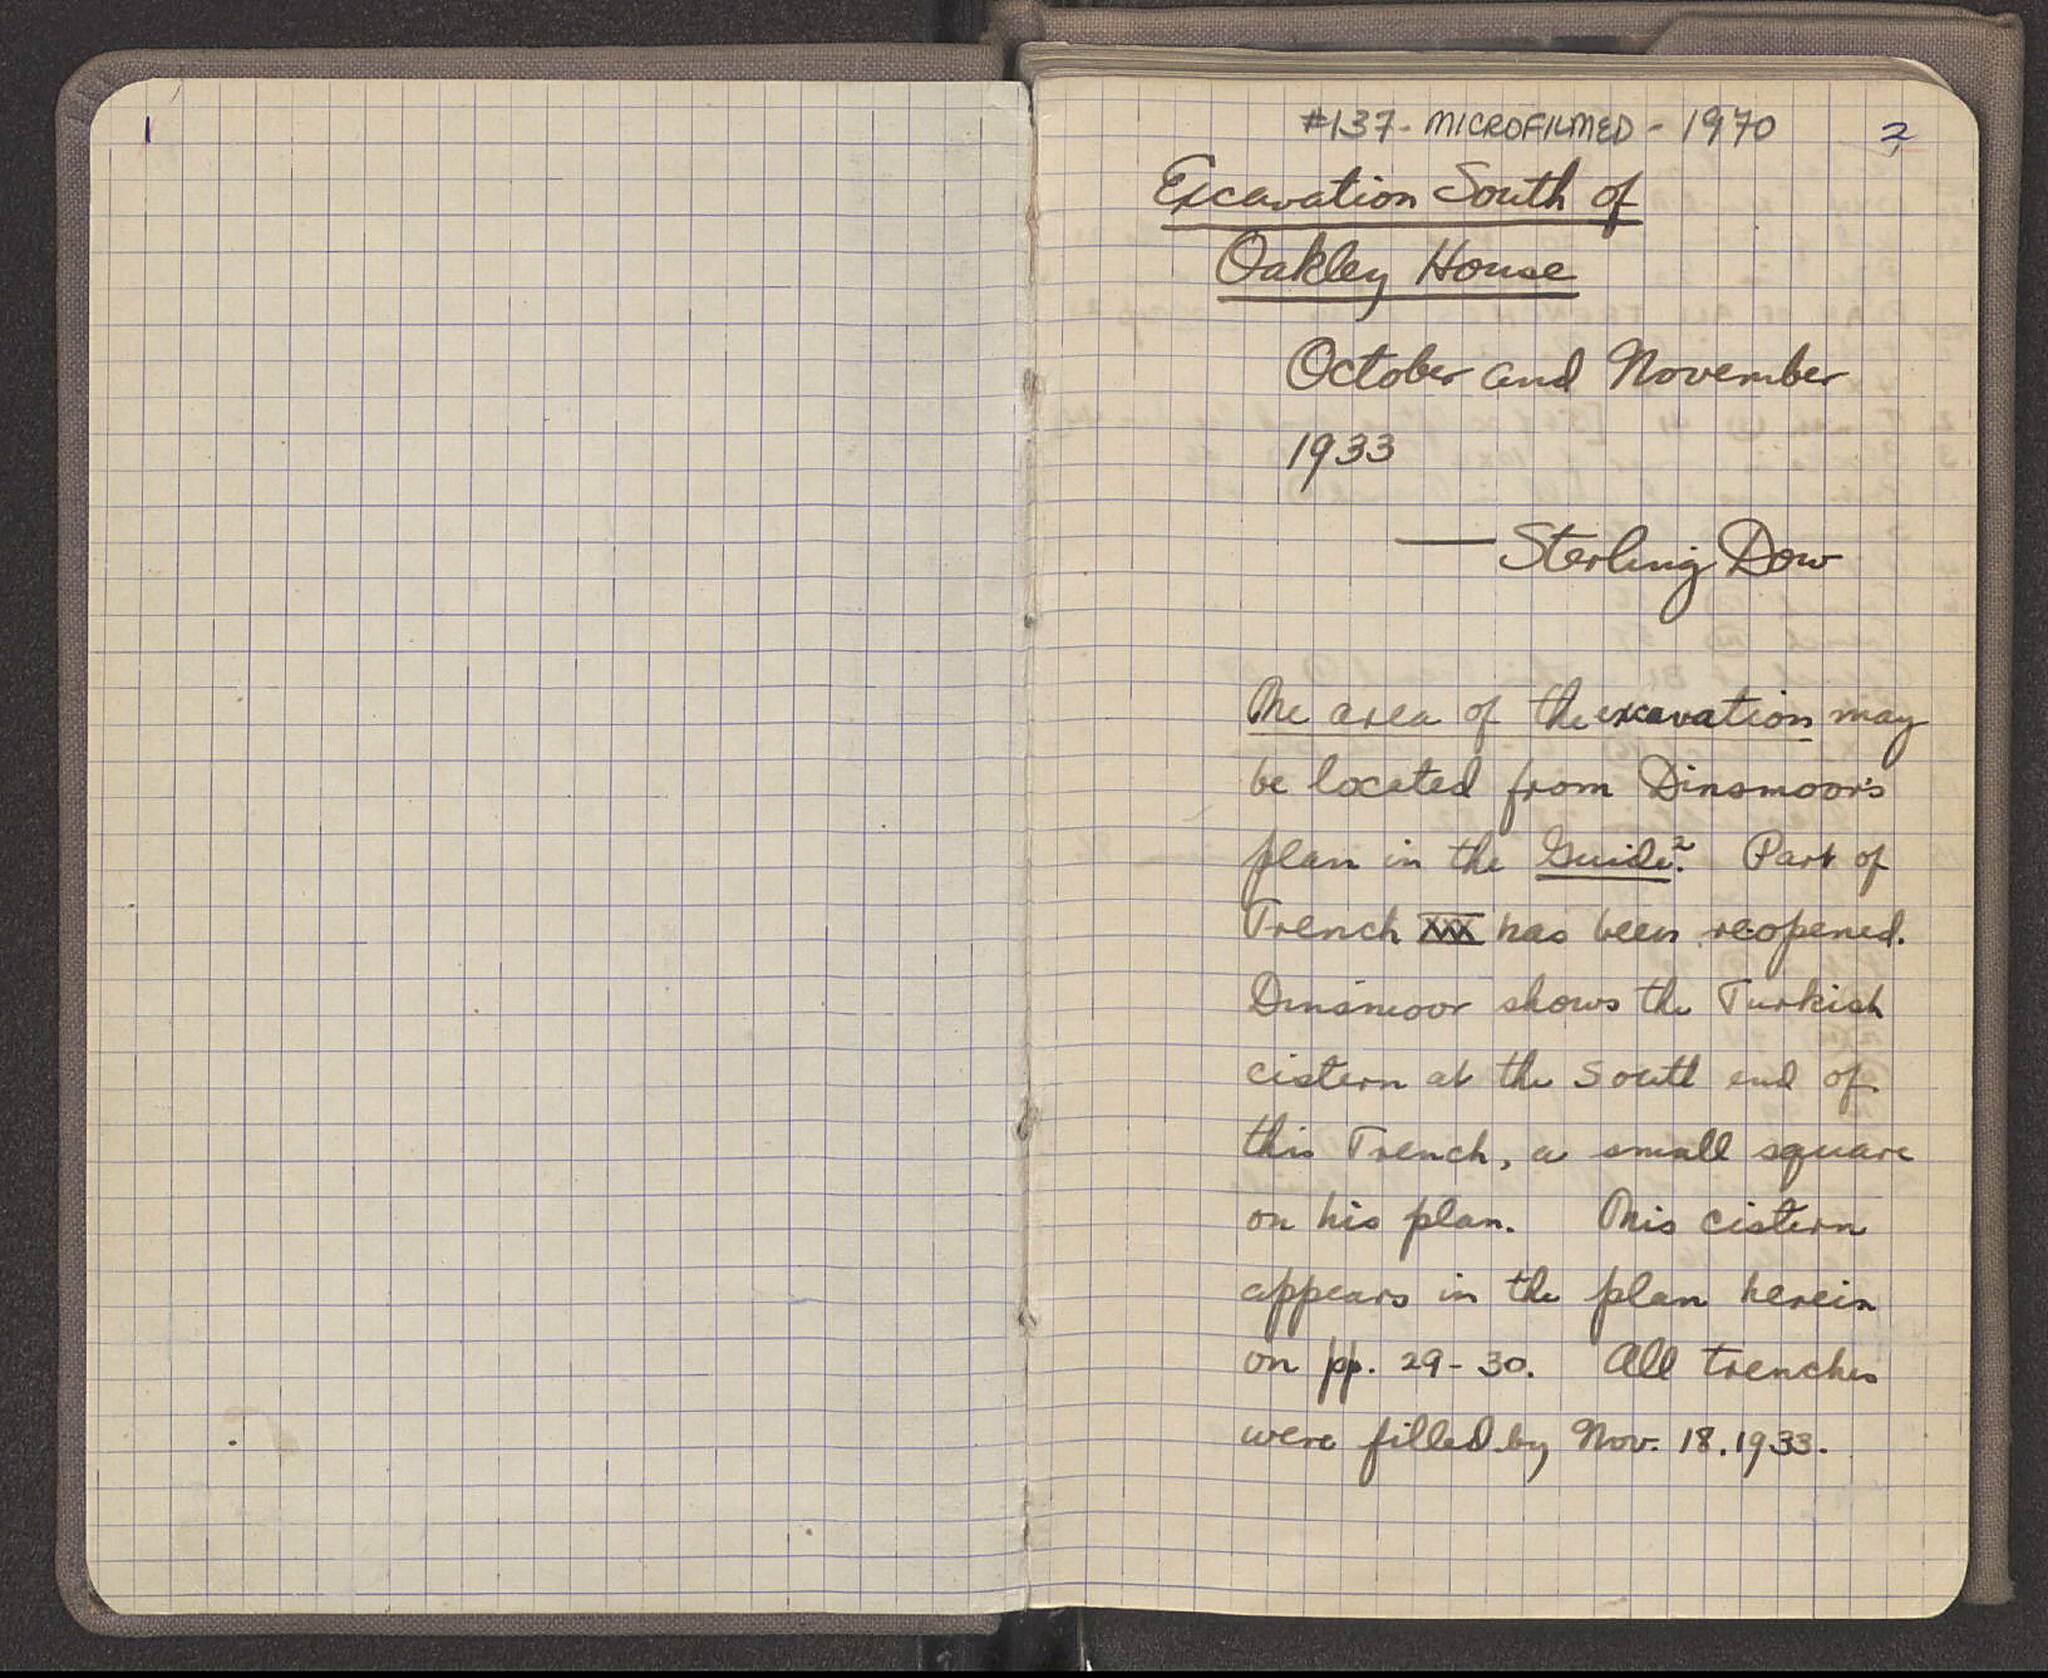 1
#137 - MICROFILMED - 1970
2
Excavation South of
Oakley House
October and November
1933
— Sterling Dow
The area of the excavation may
be located from Dinsmoor's
plan in the Guide². Part of
Trench XXX has been reopened.
Dinsmoor shows the Turkish
cistern at the South end of
this Trench, a small square
on his plan. This cistern
appears in the plan herein
on pp. 29-30. All trenches
were filled by Nov. 18. 1933.